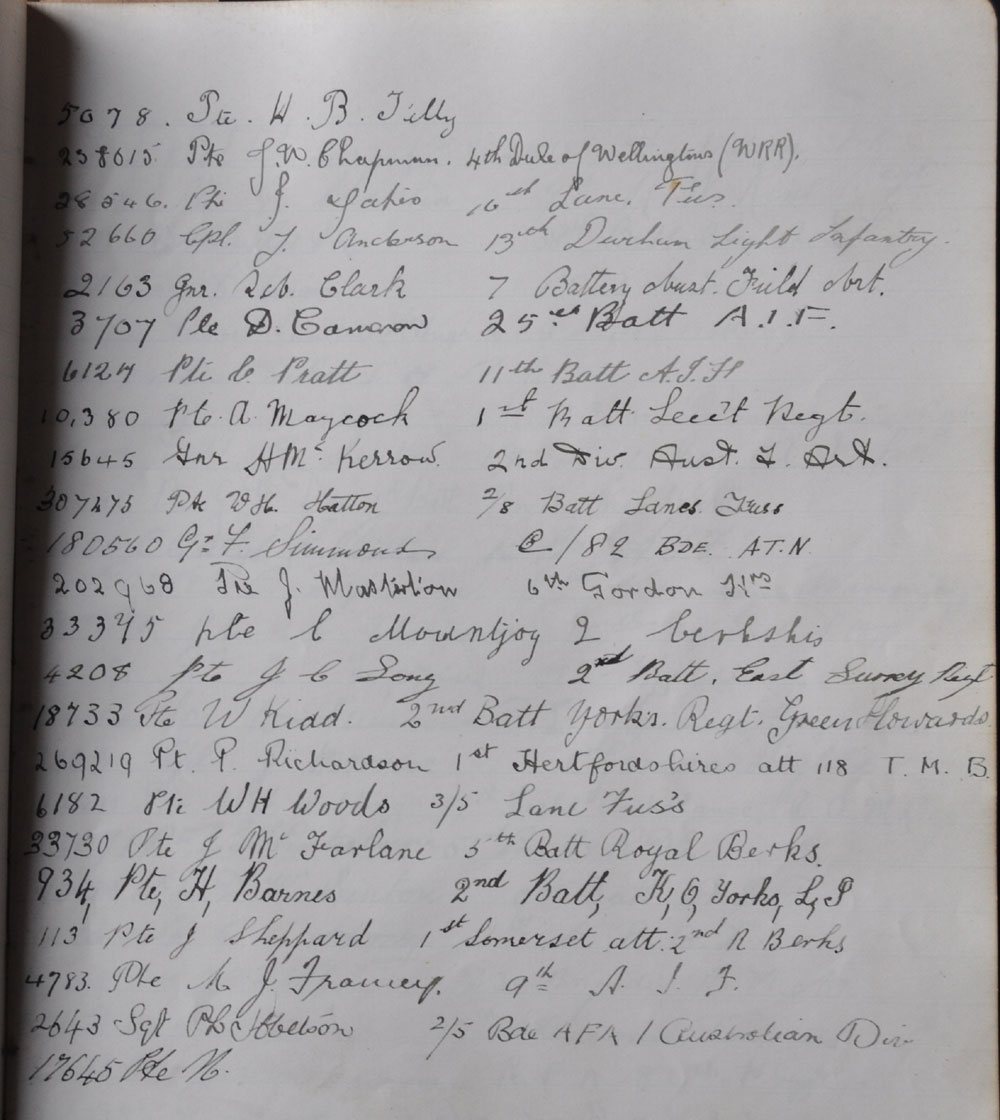 5078. Pte. H. B. Tilly
238615. Pte J.W. Chapman. 4th Duke of Wellingtons (WRR).
28546. Pte J. 16th Lanc. Fus.
52660 Cpl. J. Anderson 13th Durham Light Infantry.
2163 Gnr. Clark 7 Battery Aust. Field Art.
3707 Pte D. Cameron 25th Batt A.I.F.
6124 Pte C. Pratt 11th Batt A.I.F
10,380 Pte. A. Maycock 1st Batt Leic't Regt.
15645 Gnr H Mc Kerrow. 2nd Div. Aust. F. Art.
307275 Pte W.H. Hatton 2/8 Batt Lancs. Fuss
180560 Gr F. Simmonds C/82 BDE. AT.N
202968 Pte J. Masterton 6th Gordon Hrs
33375 pte C Mountjoy 2 berkshis
4208 Pte J C Long 2nd Batt, East Surrey Regt
18733 Pte W Kidd. 2nd Batt Yorks. Regt. Green Howards.
269219 Pt. P. Richardson 1st Hertfordshires att 118 T. M. B.
6182 Pte WH Woods 3/5 Lanc Fus's
33730 Pte J Mc Farlane 5th Batt Royal Berks.
934, Pte, H, Barnes 2nd Batt, K, O, Yorks, L, I
113 Pte J Sheppard 1st Somerset att. 2nd R Berks
4783. Pte M. J. Francey. 9th A. I. F.
2643 Sgt 2/5 Bde AFA 1 Australian Div
17645 Pte N.